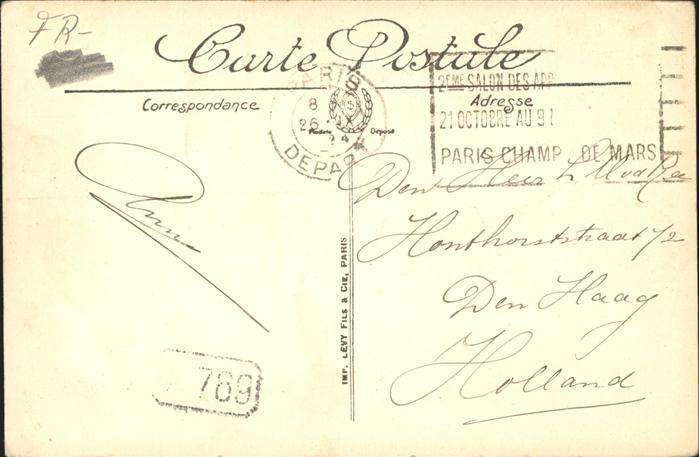 FR-
Carte Postale
Correspondance
Adresse
Modèle Déposé
PARIS
8
26 IX
24
DEPART
2EME SALON DES APP
21 OCTOBRE AU 9
PARIS CHAMP DE MARS
Den Heer
Honthorststraat 72
Den Haag
Holland
IMP. LÉVY FILS & CIE, PARIS
769